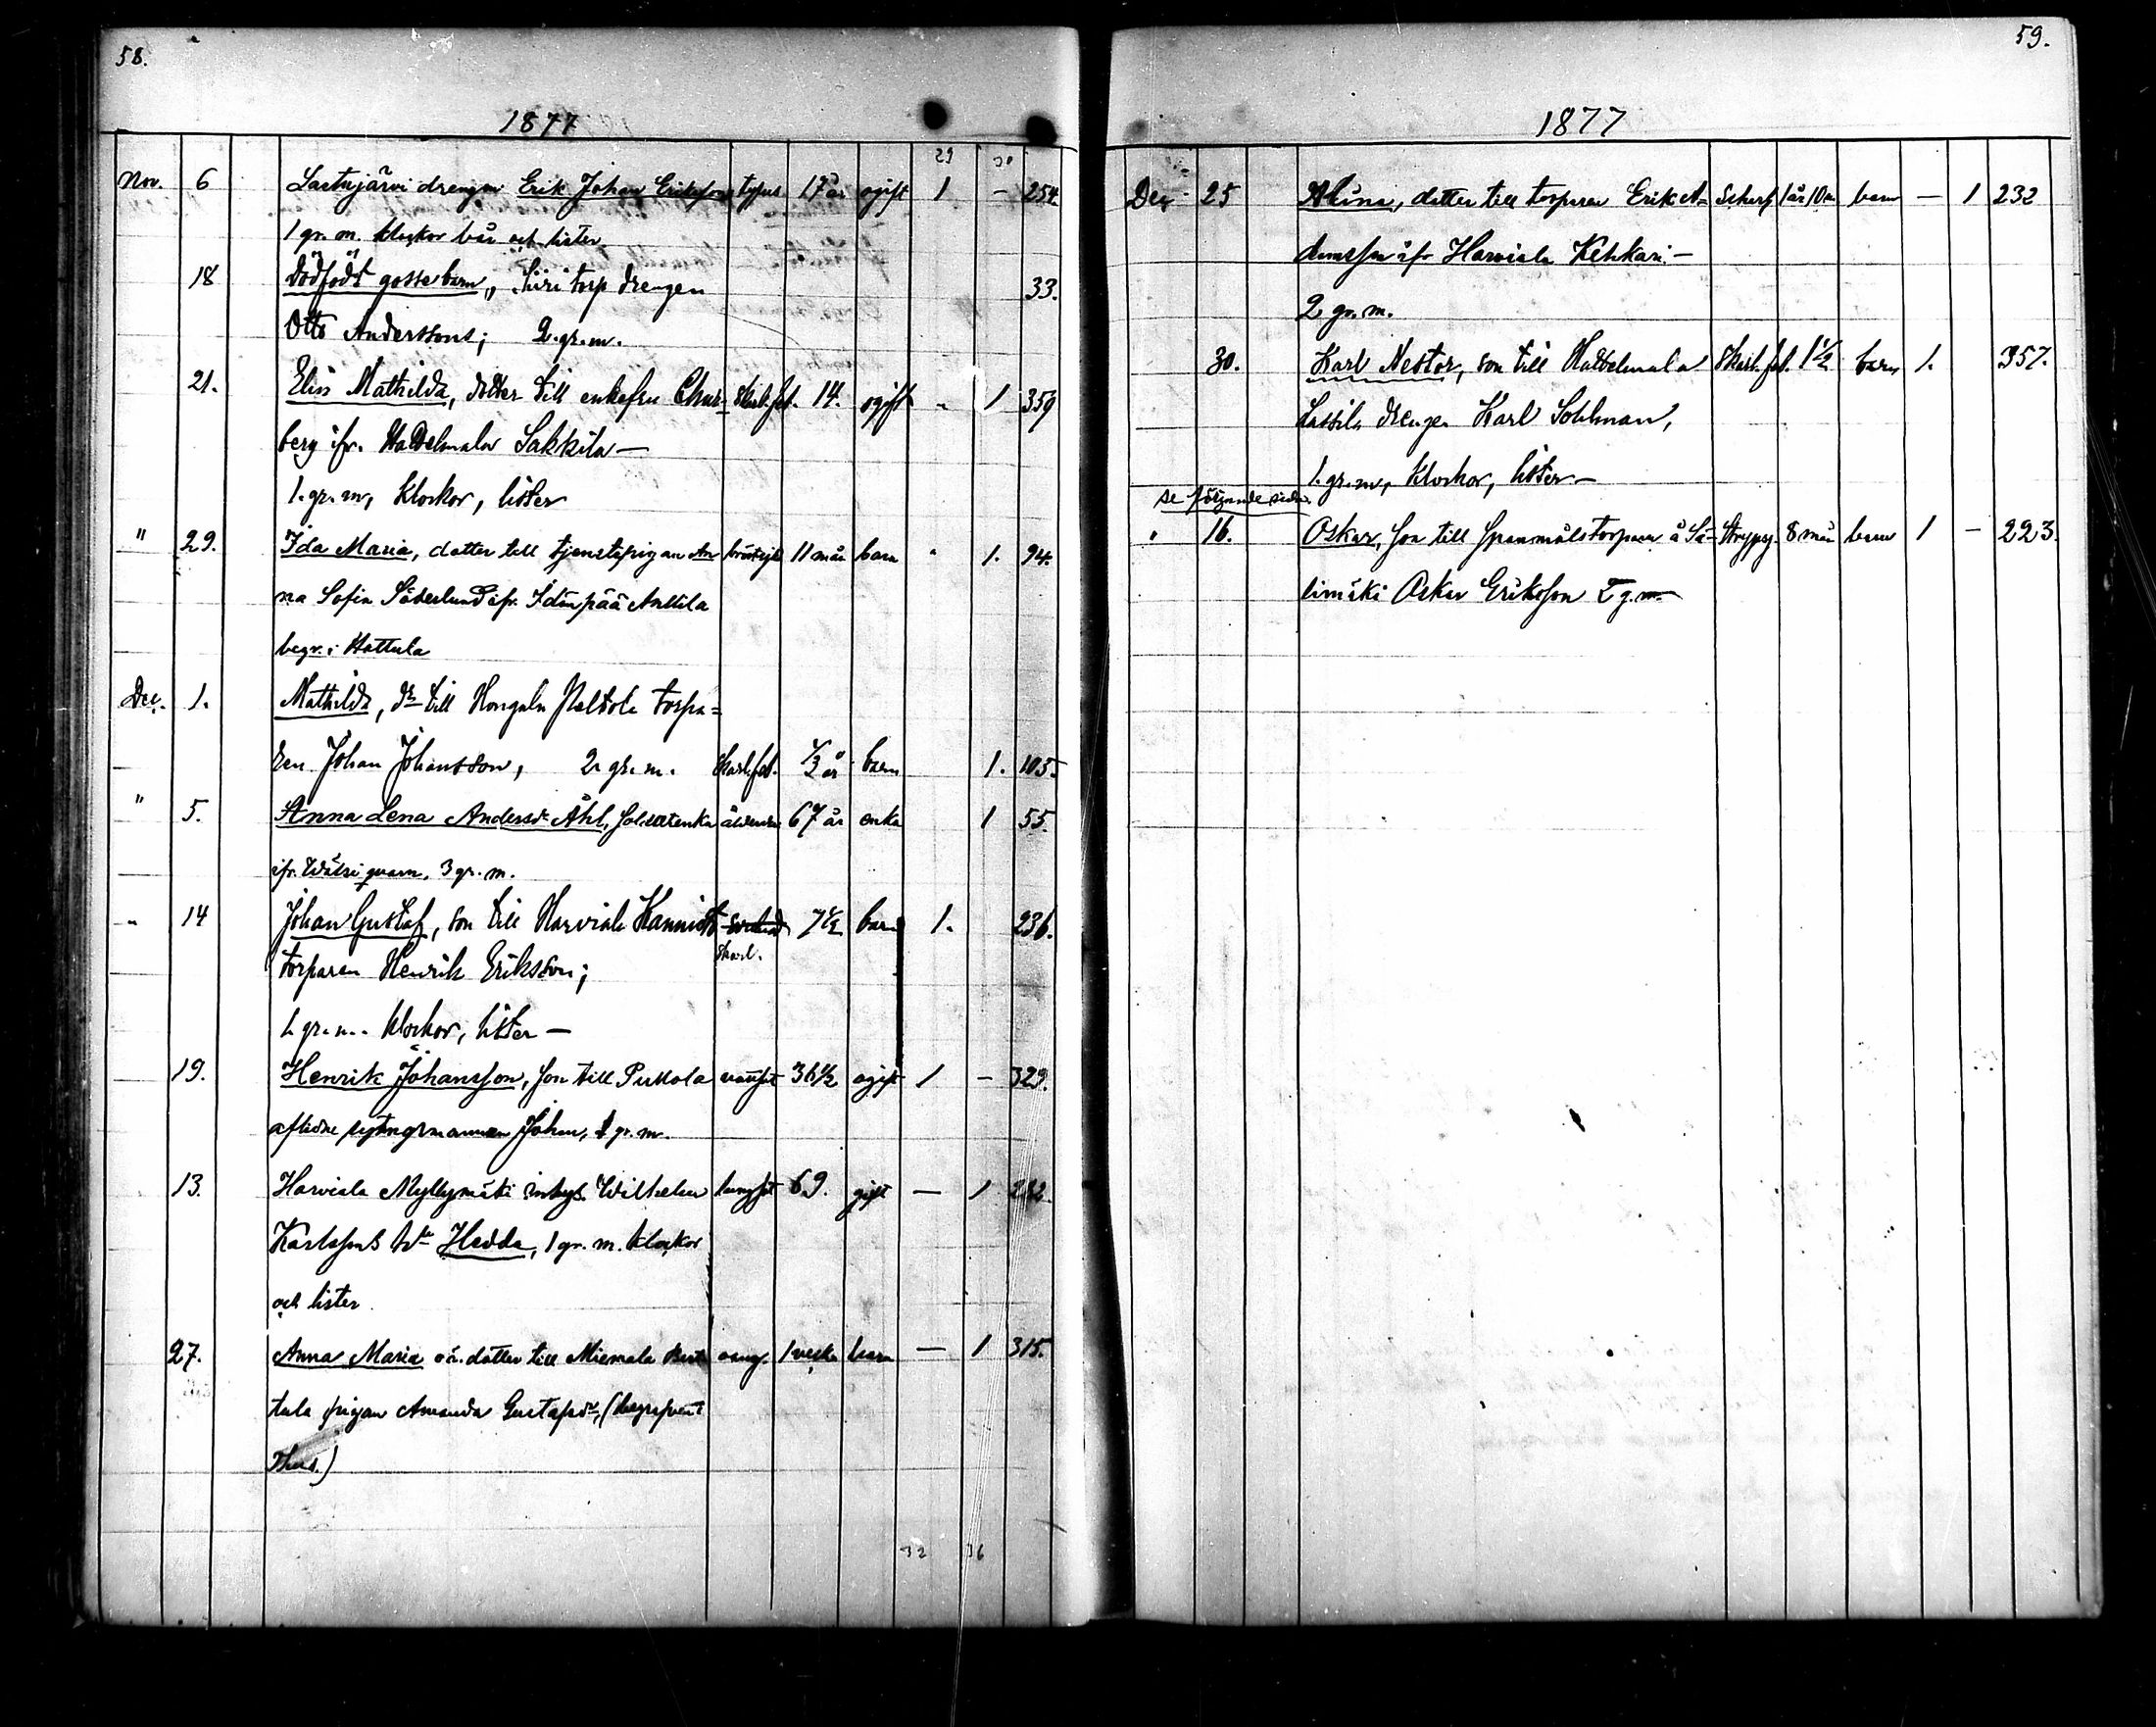 58.
1877
29
Nov. 6 Lastujärvi drengen Erik Johan Eriksson typus 17 år ogift 1 - 254
1 gr. m. klockor bår och lister
18 Dödfödt gossebarn, Siiri torp drengen 33.
Otto Anderssons; 2 gr. m.
21. Elin Mathilda, dotter till enkefru Skarl.feb. 14. ogift - 1 359
berg ifr. Hattelmala Sakkila —
1. gr. m, klockor, lister
" 29. Ida Maria, dotter till tjenstepigan An bröstsjd 11 mån barn " 1. 94.
na Sofia Söderlund ifr. Idänpää Anttila
begr. i Hattula
Dec. 1. Mathilda, dr till Hongala Peltola torpa=
ren Johan Johansson, 2 gr. m. Skarl.feb. 1/3 år barn 1. 105.
" 5. Anna Lena Andersdr Åhl, soldatenka ålderdom 67 år enka 1 55.
ifr. quarn, 3 gr. m.
" 14 Johan Gustaf, son till Harviala Kannisto 7 1/2 barn 1. 236.
Skarl.
torparen Henrik Eriksson;
1. gr. m. klockor, lister —
19. Henrik Johansson, son till Pullola 36 1/2 ogift 1 - 329.
aflidne sytningsmannen Johan, 1 gr. m.
13. Harviala Myllymäki inhys. Wilhelm lungsot 69. gift — 1
Karlssons h:u Hedda, 1 gr. m. klockor
och lister
27. Anna Maria oä. dotter till Miemala 1 vecka barn — 1 315.
tula pigan Amanda Gustafsdr,
32 36
59.
1877
Dec. 25 Alina, dotter till torparen Erik A= 1 år 10 m barn — 1 232
damsson ifr Harviala Kehkari —
2 gr. m.
30. Karl Nestor, son till Hattelmala Skarl. feb. 1 1/2 barn 1. 357.
Lassila drengen Karl Sohlman,
1. gr. m, klockor, lister —
se följande sida.
" 16. Oskar, son till Spannmåls torparen å Sä= Strypsj. 8 mån barn 1 - 223.
limäki Oskar Eriksson 2 g. m.